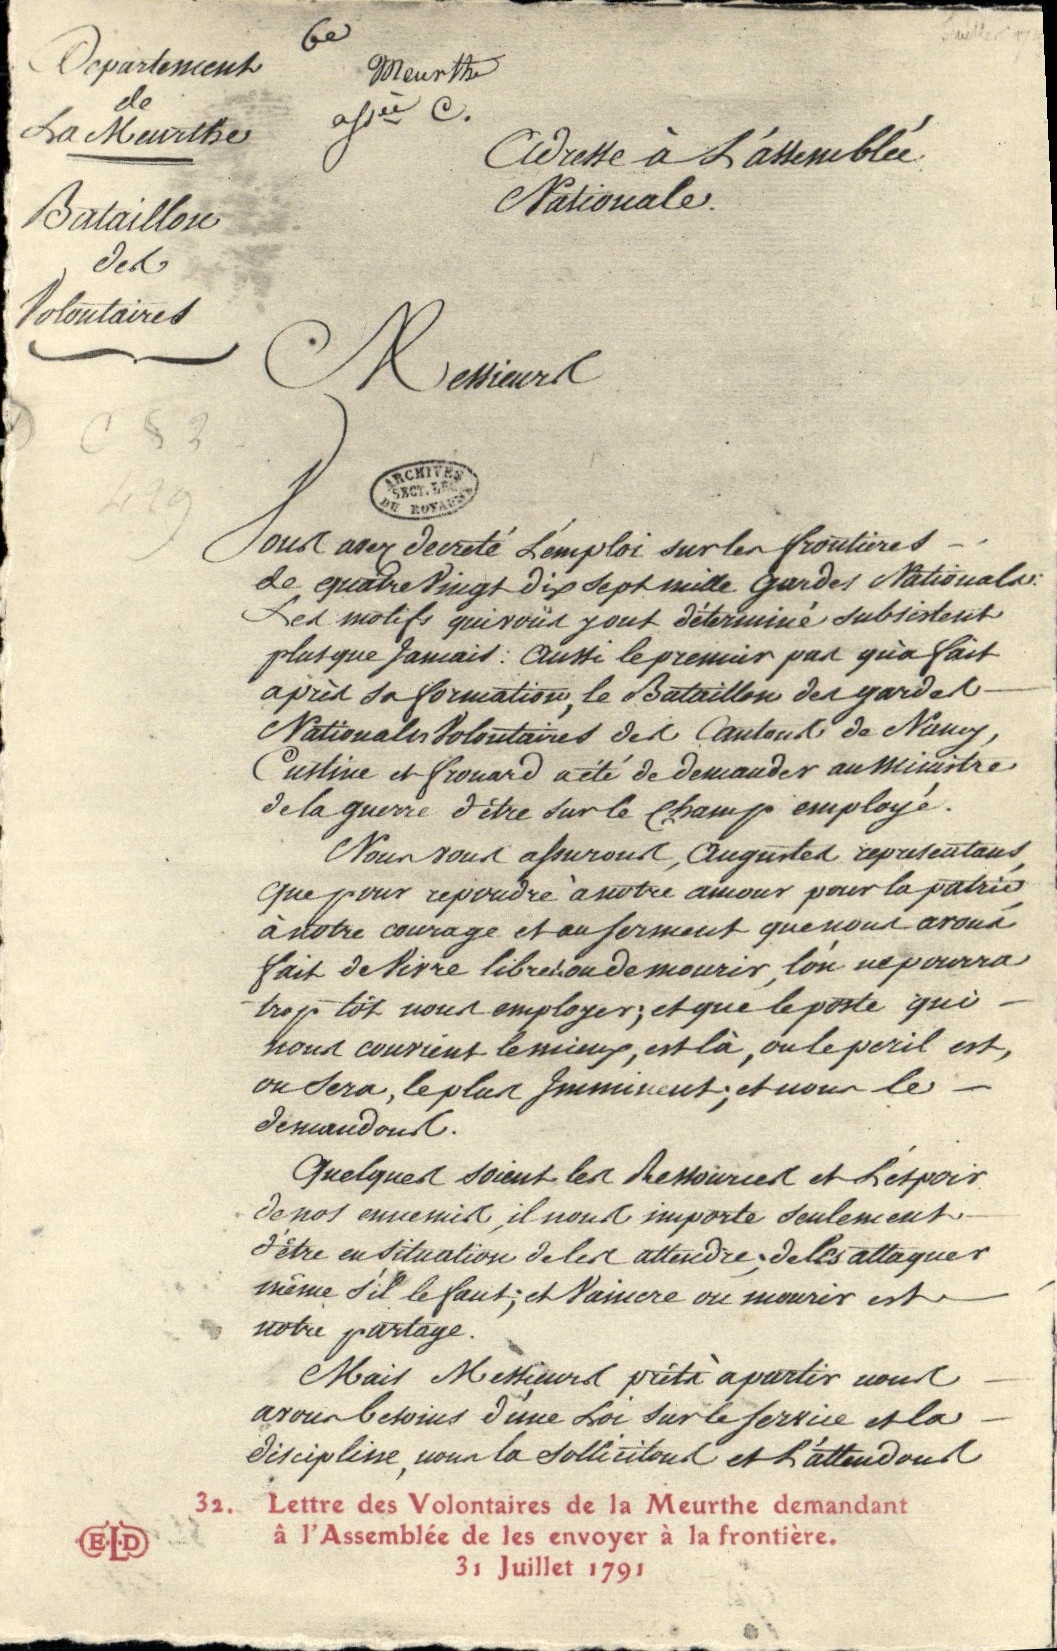 Departement
de
La Meurthe
Bataillon
des
Volontaires
6e
Meurthe
assée C.
Adresse à L'assemblée
Nationale.
Messieurs
C § 2
429
ARCHIVES
SECT. LEG
DU ROYAUME
Vous avez decreté L'emploi sur les frontieres -
de quatre Vingt dix sept mille gardes Nationales:
Les motifs qui vous y ont déterminé subsistent
plus que Jamais: Aussi le premier pas qu'a fait
après sa formation, le Bataillon des gardes —
Nationales Volontaires des Cantons de Nancy,
Custine et frouard a été de demander au Ministre
de la guerre d'être sur le Champ employé.
Nous vous assurons, Augustes representans,
que pour repondre à notre amour pour la patrie
à notre courage et au serment que nous avons
fait de Vivre libres ou de mourir, l'on ne pourra
trop tôt nous employer; et que le poste qui —
nous convient le mieux, est là, ou le peril est,
ou sera, le plus Imminent; et nous le —
demandons.
Quelques soient les Ressources et L'éspoir
de nos ennemis, il nous importe seulement —
d'être en situation de les attendre; de les attaquer
même s'il le faut; et Vaincre ou mourir est —
notre partage.
Mais Messieurs prêts a partir nous —
avons besoins d'une Loi sur le service et la —
discipline, nous la sollicitons et L'attendons
32. Lettre des Volontaires de la Meurthe demandant
â l'Assemblée de les envoyer à la frontière.
31 Juillet 1791
ELD